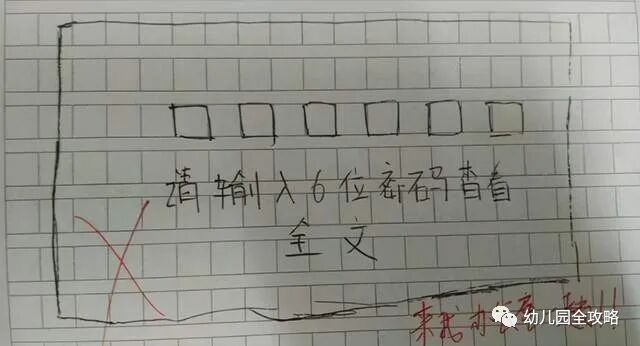 请输入6位密码查看
全文
来我办公室一趟!!
幼儿园全攻略